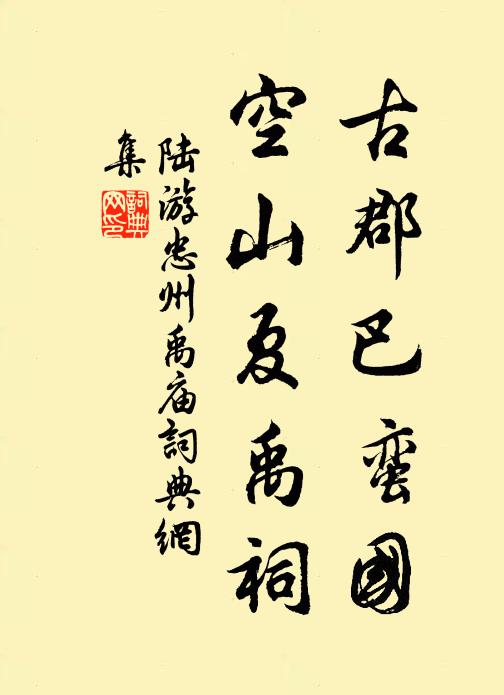 古郡巴蛮國
空山夏禹祠
陆游忠州禹庙詞典網
集
詞典网印